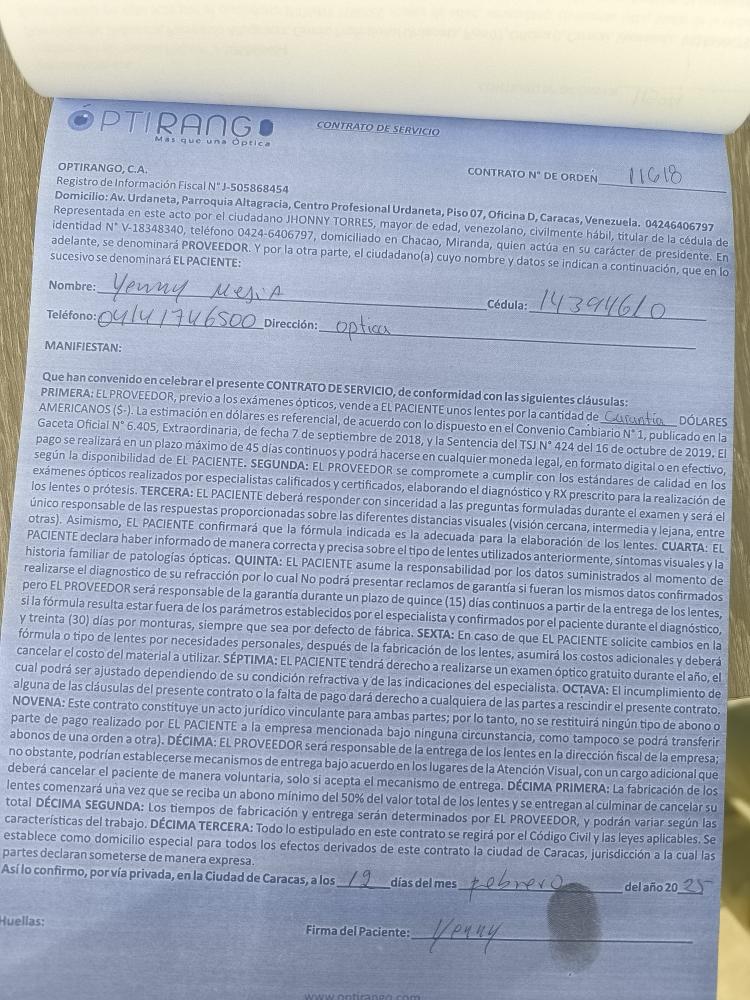 ÓPTIRANGO
Más que una Óptica
CONTRATO DE SERVICIO
CONTRATO N° DE ORDEN 11618
OPTIRANGO, C.A.
Registro de Información Fiscal N° J-505868454
Domicilio: Av. Urdaneta, Parroquia Altagracia, Centro Profesional Urdaneta, Piso 07, Oficina D, Caracas, Venezuela. 04246406797
Representada en este acto por el ciudadano JHONNY TORRES, mayor de edad, venezolano, civilmente hábil, titular de la cédula de
identidad N° V-18348340, teléfono 0424-6406797, domiciliado en Chacao, Miranda, quien actúa en su carácter de presidente. En
adelante, se denominará PROVEEDOR. Y por la otra parte, el ciudadano(a) cuyo nombre y datos se indican a continuación, que en lo
sucesivo se denominará EL PACIENTE:
Nombre: Yenny Mejia Cédula: 14394610
Teléfono: 04141746500 Dirección: optica
MANIFIESTAN:
Que han convenido en celebrar el presente CONTRATO DE SERVICIO, de conformidad con las siguientes cláusulas:
PRIMERA: EL PROVEEDOR, previo a los exámenes ópticos, vende a EL PACIENTE unos lentes por la cantidad de Garantia DÓLARES
AMERICANOS ($-). La estimación en dólares es referencial, de acuerdo con lo dispuesto en el Convenio Cambiario N° 1, publicado en la
Gaceta Oficial N° 6.405, Extraordinaria, de fecha 7 de septiembre de 2018, y la Sentencia del TSJ N° 424 del 16 de octubre de 2019. El
pago se realizará en un plazo máximo de 45 días continuos y podrá hacerse en cualquier moneda legal, en formato digital o en efectivo,
según la disponibilidad de EL PACIENTE. SEGUNDA: EL PROVEEDOR se compromete a cumplir con los estándares de calidad en los
exámenes ópticos realizados por especialistas calificados y certificados, elaborando el diagnóstico y RX prescrito para la realización de
los lentes o prótesis. TERCERA: EL PACIENTE deberá responder con sinceridad a las preguntas formuladas durante el examen y será el
único responsable de las respuestas proporcionadas sobre las diferentes distancias visuales (visión cercana, intermedia y lejana, entre
otras). Asimismo, EL PACIENTE confirmará que la fórmula indicada es la adecuada para la elaboración de los lentes. CUARTA: EL
PACIENTE declara haber informado de manera correcta y precisa sobre el tipo de lentes utilizados anteriormente, síntomas visuales y la
historia familiar de patologías ópticas. QUINTA: EL PACIENTE asume la responsabilidad por los datos suministrados al momento de
realizarse el diagnostico de su refracción por lo cual No podrá presentar reclamos de garantía si fueran los mismos datos confirmados
pero EL PROVEEDOR será responsable de la garantía durante un plazo de quince (15) días continuos a partir de la entrega de los lentes,
si la fórmula resulta estar fuera de los parámetros establecidos por el especialista y confirmados por el paciente durante el diagnóstico,
y treinta (30) días por monturas, siempre que sea por defecto de fábrica. SEXTA: En caso de que EL PACIENTE solicite cambios en la
fórmula o tipo de lentes por necesidades personales, después de la fabricación de los lentes, asumirá los costos adicionales y deberá
cancelar el costo del material a utilizar. SÉPTIMA: EL PACIENTE tendrá derecho a realizarse un examen óptico gratuito durante el año, el
cual podrá ser ajustado dependiendo de su condición refractiva y de las indicaciones del especialista. OCTAVA: El incumplimiento de
alguna de las cláusulas del presente contrato o la falta de pago dará derecho a cualquiera de las partes a rescindir el presente contrato.
NOVENA: Este contrato constituye un acto jurídico vinculante para ambas partes; por lo tanto, no se restituirá ningún tipo de abono o
parte de pago realizado por EL PACIENTE a la empresa mencionada bajo ninguna circunstancia, como tampoco se podrá transferir
abonos de una orden a otra). DÉCIMA: EL PROVEEDOR será responsable de la entrega de los lentes en la dirección fiscal de la empresa;
no obstante, podrían establecerse mecanismos de entrega bajo acuerdo en los lugares de la Atención Visual, con un cargo adicional que
deberá cancelar el paciente de manera voluntaria, solo si acepta el mecanismo de entrega. DÉCIMA PRIMERA: La fabricación de los
lentes comenzará una vez que se reciba un abono mínimo del 50% del valor total de los lentes y se entregan al culminar de cancelar su
total DÉCIMA SEGUNDA: Los tiempos de fabricación y entrega serán determinados por EL PROVEEDOR, y podrán variar según las
características del trabajo. DÉCIMA TERCERA: Todo lo estipulado en este contrato se regirá por el Código Civil y las leyes aplicables. Se
establece como domicilio especial para todos los efectos derivados de este contrato la ciudad de Caracas, jurisdicción a la cual las
partes declaran someterse de manera expresa.
Así lo confirmo, por vía privada, en la Ciudad de Caracas, a los 12 días del mes febrero del año 2025
Huellas:
Firma del Paciente: Yenny
www.optirango.com